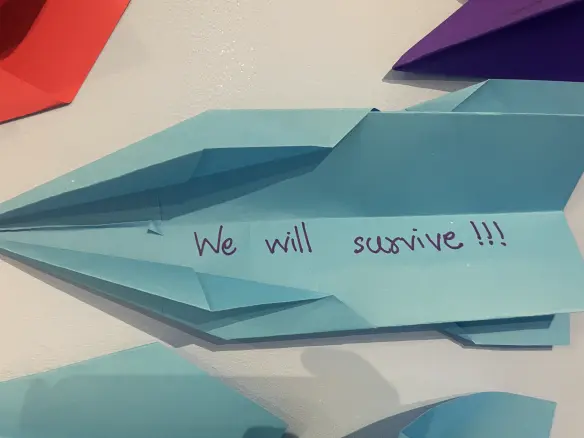 We will survive!!!